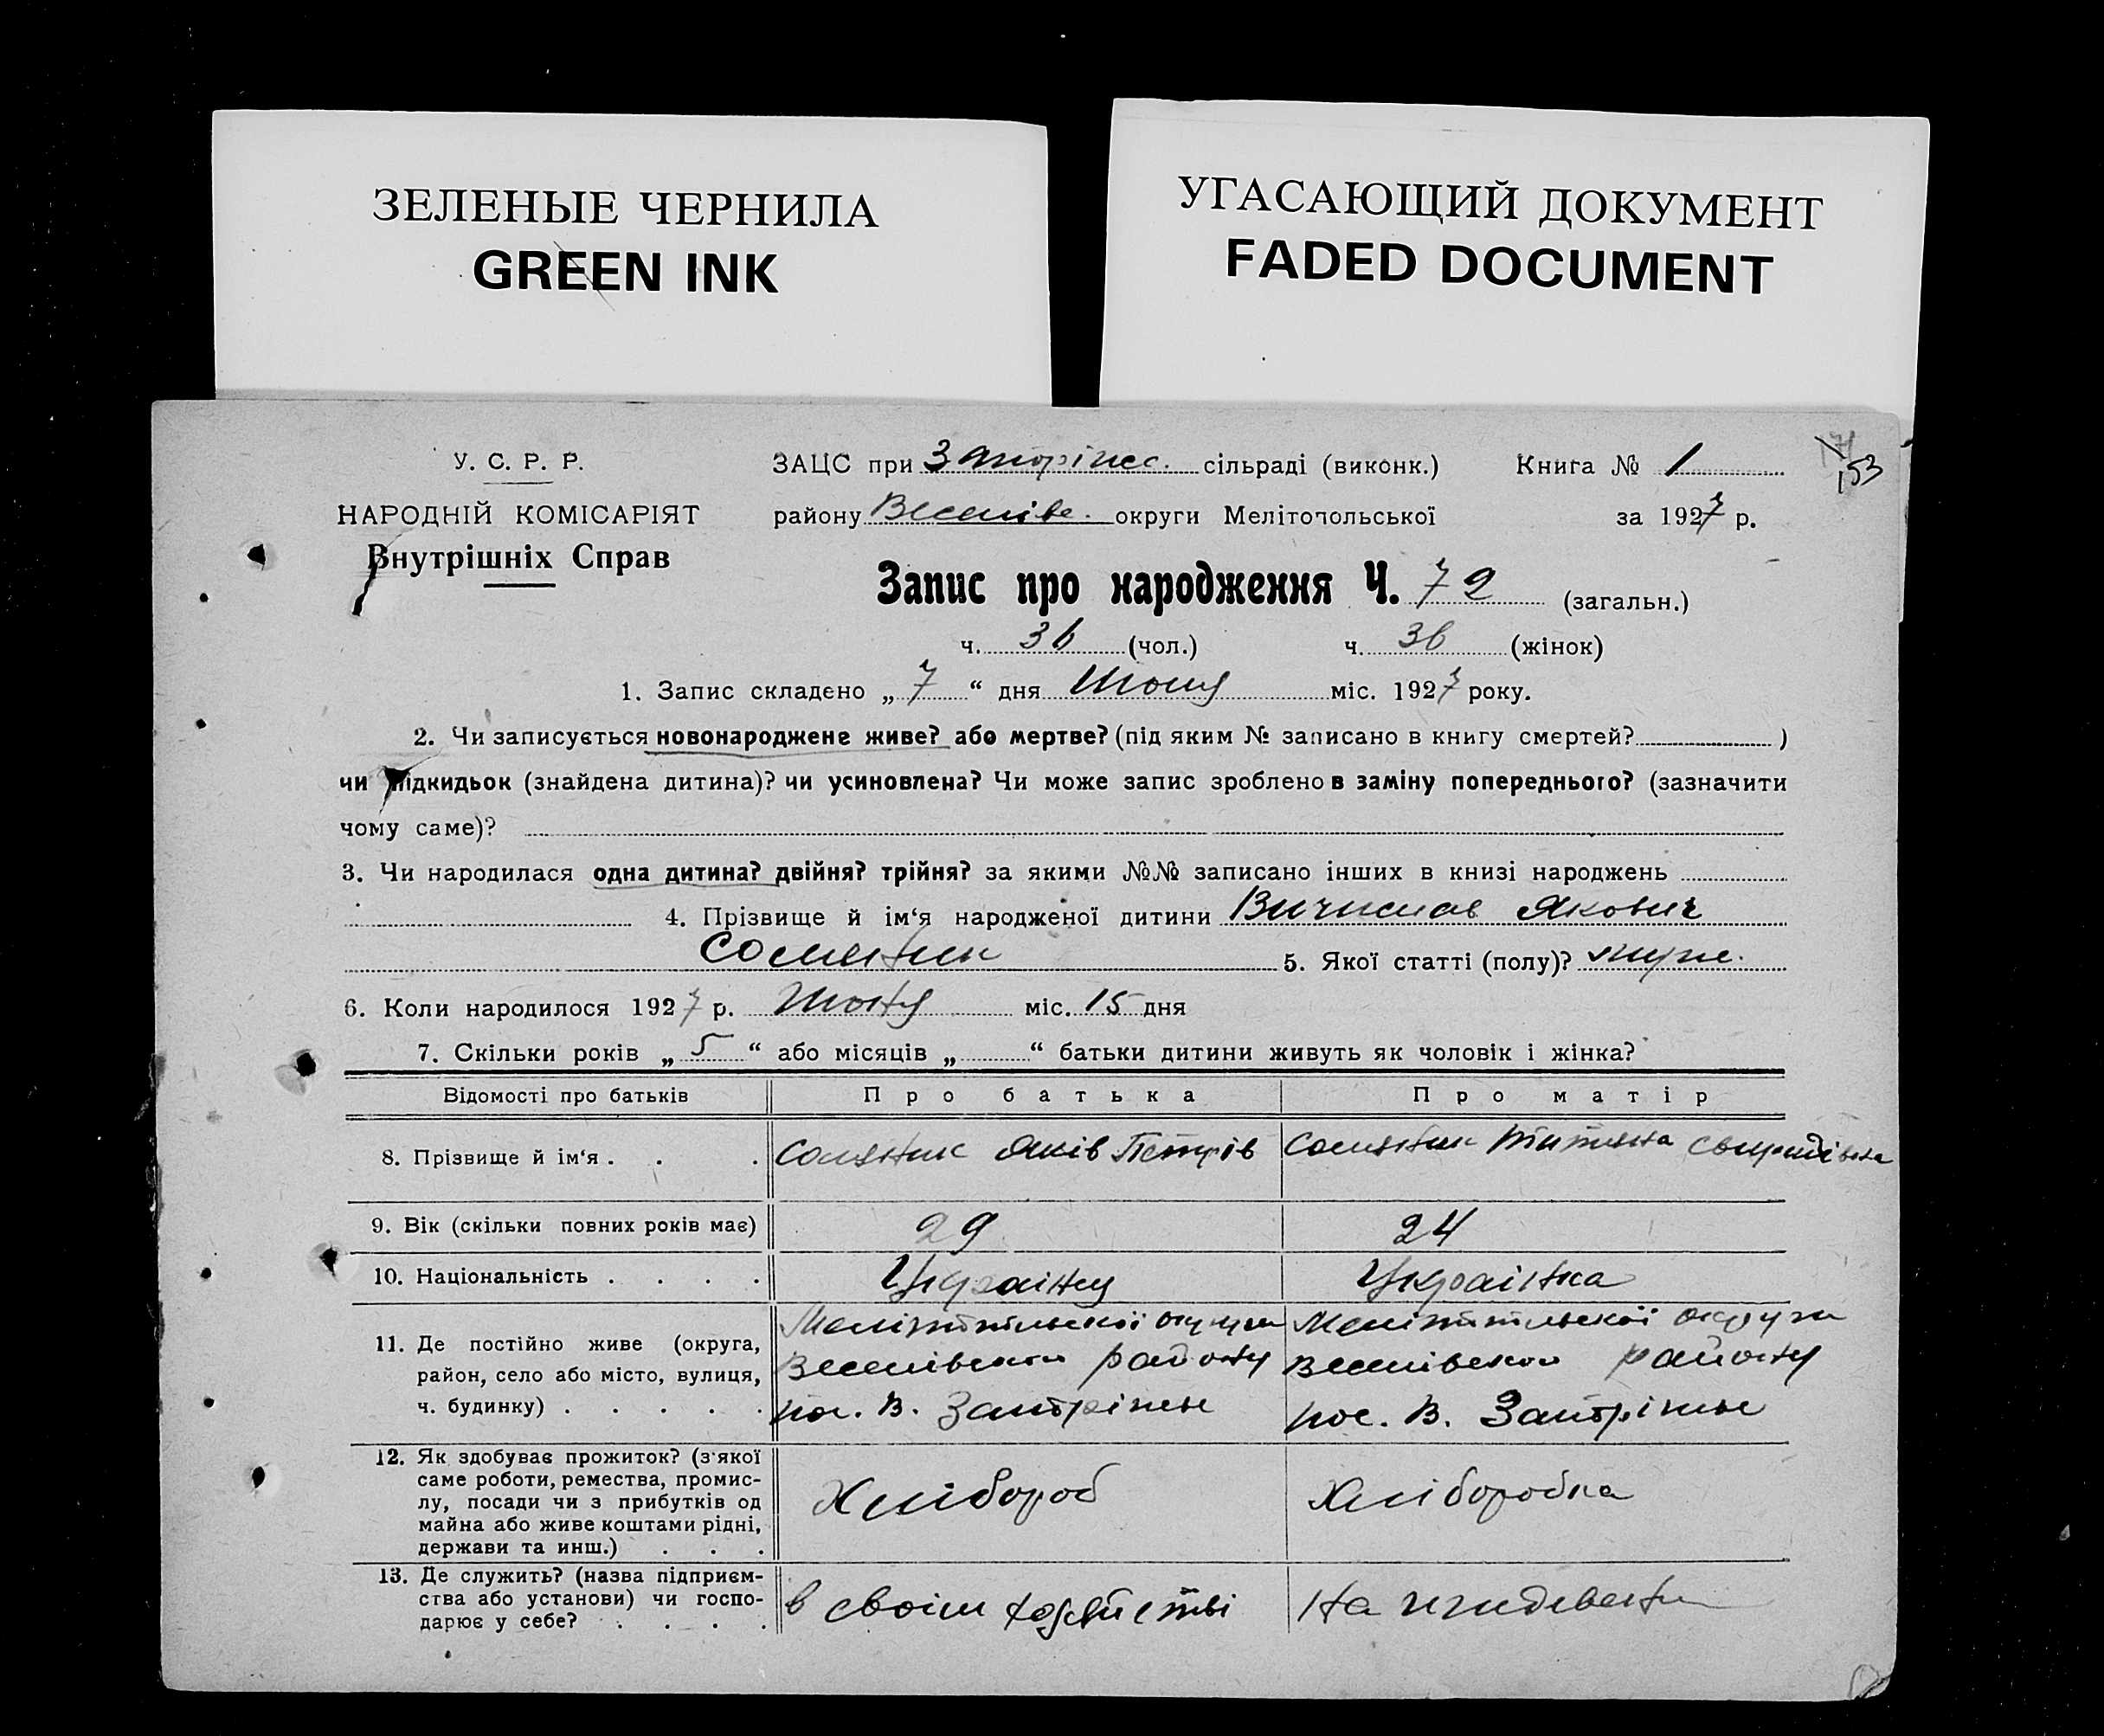 ЗЕЛЕНЫЕ ЧЕРНИЛА
GREEN INK
УГАСАЮЩИЙ ДОКУМЕНТ
FADED DOCUMENT
153
У. С. Р. Р.
НАРОДНІЙ КОМІСАРІЯТ
Внутрішніх Справ
ЗАЦС при Запоріжс. сільраді (виконк.) Книга № 1
району Веселівс. округи Мелітопольської за 1927 р.
Запис про народження Ч. 72 (загальн.)
ч. 36 (чол.) ч. 36 (жінок)
1. Запис складено „ 7 “ дня міс. 1927 року.
2. Чи записується новонароджене живе? або мертве? (під яким № записано в книгу смертей? )
чи підкидьок (знайдена дитина)? чи усиновлена? Чи може запис зроблено в заміну попереднього? (зазначити
чому саме)?
3. Чи народилася одна дитина? двійня? трійня? за якими №№ записано інших в книзі народжень
4. Прізвище й ім‘я народженої дитини Вичислав Якович
Соляник 5. Якої статті (полу)? муж.
6. Коли народилося 1927 р. міс. 15 дня
7. Скільки років „ 5 “ або місяців „ “ батьки дитини живуть як чоловік і жінка?
Відомості про батьків Про батька Про матір
8. Прізвище й ім‘я . . . Соляник Яків Петрів Соляник Титяна Свиридівна
9. Вік (скільки повних років має) 29 24
10. Національність . . . . Українец Українка
11. Де постійно живе (округа,
район, село або місто, вулиця,
ч. будинку) . . . . .
Мелітопільскої округи
Веселівского району
пос. В. Запоріжье
Мелітопільскої округи
Веселівского району
пос. В. Запоріжье
12. Як здобуває прожиток? (з‘якої
саме роботи, ремества, промис-
лу, посади чи з прибутків од
майна або живе коштами рідні,
держави та инш.) . . .
Хлібороб
Хліборобка
13. Де служить? (назва підприєм-
ства або установи) чи госпо-
дарює у себе? . . . .
в своім хозяйстві
На иждевении